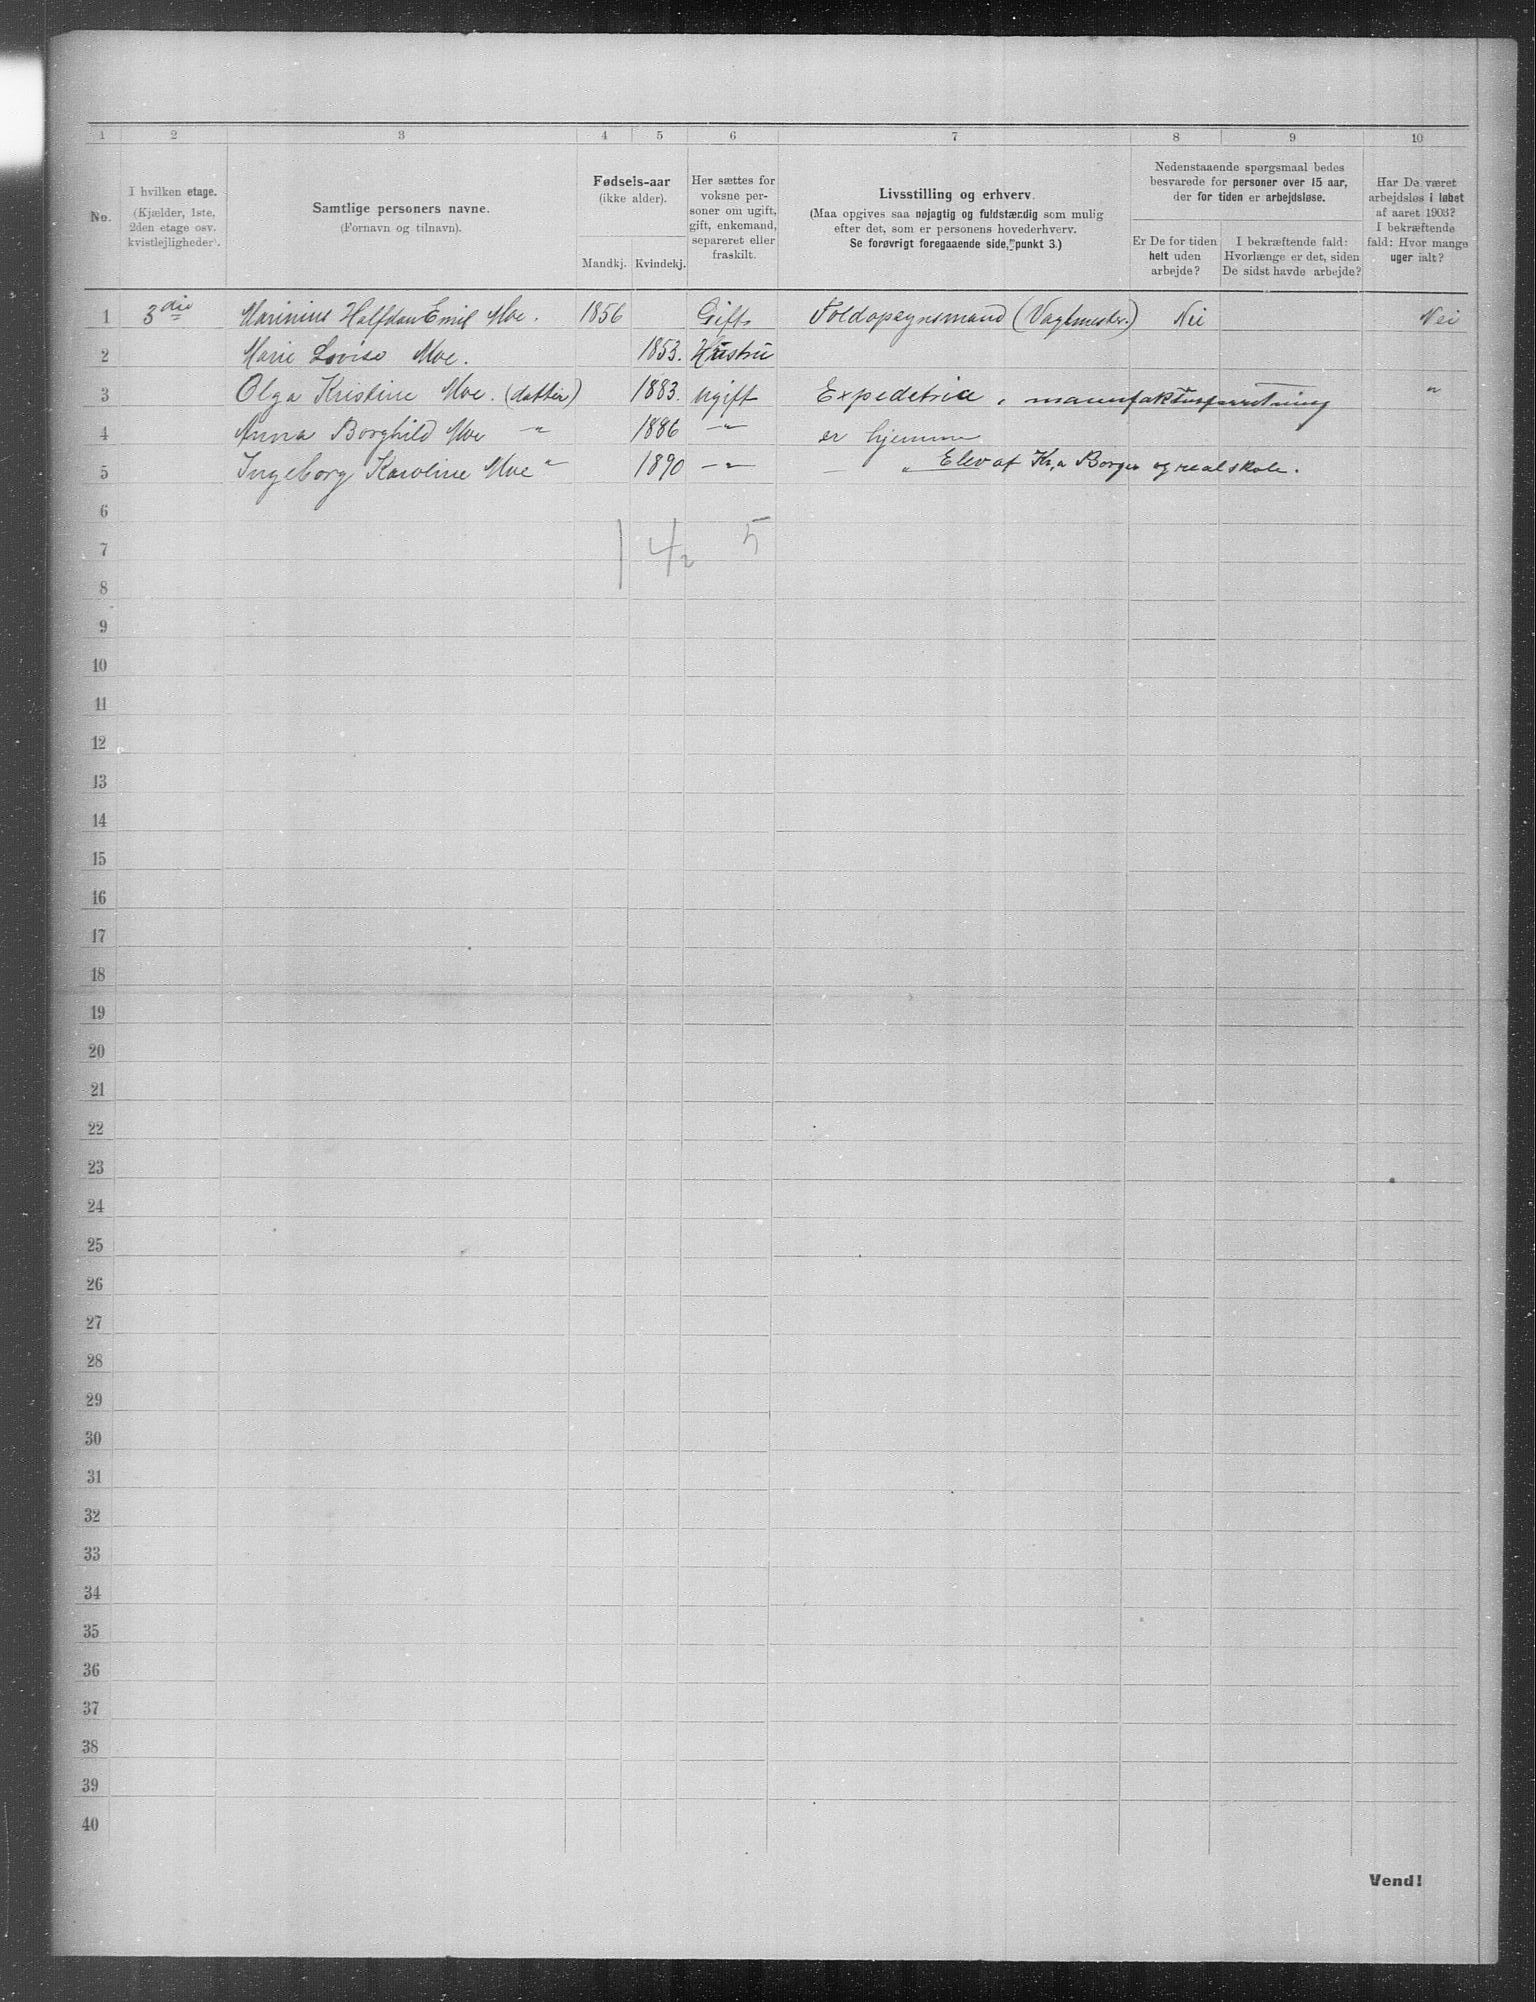 1 2 3 4 5 6 7 8 9 10
No.
I hvilken etage.
(Kjælder, 1ste,
2den etage osv.
kvistlejligheder).
Samtlige personers navne.
(Fornavn og tilnavn).
Fødsels-aar
(ikke alder).
Mandkj. Kvindekj.
Her sættes for
voksne per-
soner om ugift,
gift, enkemand,
separeret eller
fraskilt.
Livsstilling og erhverv.
(Maa opgives saa nøjagtig og fuldstændig som mulig
efter det, som er personens hovederhverv.
Se forøvrigt foregaaende side, punkt 3.)
Nedenstaaende spørgsmaal bedes
besvarede for personer over 15 aar,
der for tiden er arbejdsløse.
Er De for tiden
helt uden
arbejde?
I bekræftende fald:
Hvorlænge er det, siden
De sidst havde arbejde?
Har De været
arbejdsløs i løbet
af aaret 1903?
I bekræftende
fald: Hvor mange
uger ialt?
1 3die Marinius Halfdan Emil Moe. 1856 Gift Toldopsynsmand (Vagtmester.) Nei Nei
2 Marie Lovise Moe. 1853. Hustru
3 Olga Kristine Moe. (datter) 1883. ugift Expeditrice, manufakturforretning "
4 Anna Borghild Moe " 1886 -"- er hjemme
5 Ingeborg Karoline Moe " 1890 -"- — " Elev af Kr.a Borger og realskole.
6
7 1 4/2 5
8
9
10
11
12
13
14
15
16
17
18
19
20
21
22
23
24
25
26
27
28
29
30
31
32
33
34
35
36
37
38
39
40
Vend!